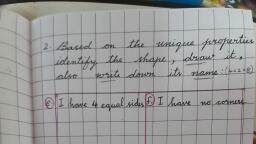 2. Based on the unique properties
identify the shape, draw it,
also write down its name:
e) I have 4 equal sides f) I have no corners